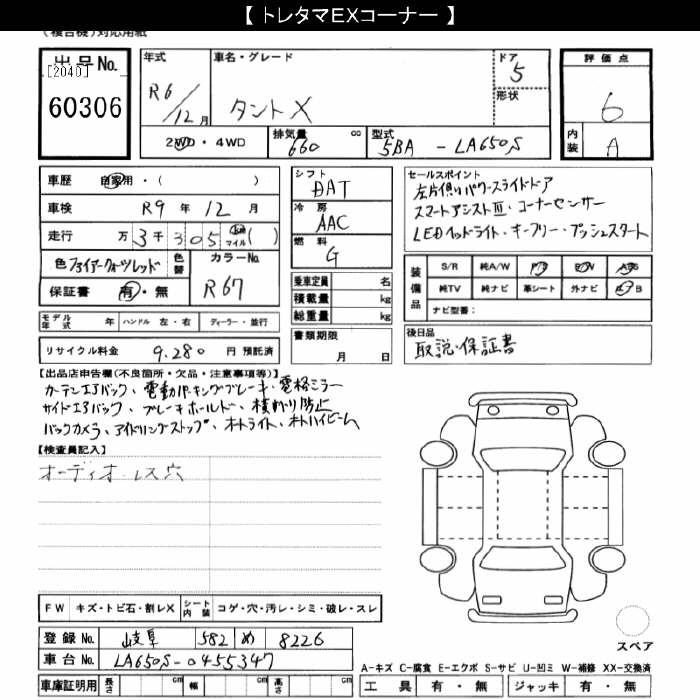 【 トレタマEXコーナー 】
(複合機)対応用紙
出品No.
[2040]
60306
年式
R6/12月
車名・グレード
タントX
ドア
5
形状
評価点
6
内装
A
2WD・4WD
排気量
660
cc
型式
5BA - LA650S
車歴 自家用・( )
車検 R9年 12月
走行 万3千305 km マイル( )
色 ファイアークォーツレッド
色替
カラーNo.
R67
保証書 有・無
シフト
DAT
冷房
AAC
燃料
G
乗車定員 名
積載量 kg
総重量 kg
セールスポイント
左片側パワースライドドア
スマートアシストⅢ・コーナーセンサー
LEDヘッドライト・キーフリー・プッシュスタート
装備品
S/R 純A/W P/S P/W ABS
純TV 純ナビ 革シート 外ナビ A/B
ナビ型番:
モデル年式 年 ハンドル 左・右 ディーラー・並行
書類期限
月 日
後日品
取説・保証書
リサイクル料金 9.280 円 預託済
【出品店申告欄(不良箇所・欠品・注意事項等)】
カーテンエアバック、電動パーキングブレーキ、電格ミラー
サイドエアバック、ブレーキホールド、横滑り防止
バックカメラ、アイドリングストップ、オートライト、オートハイビーム
【検査員記入】
オーディオ・レス穴
FW キズ・トビ石・割レX シート内装 コゲ・穴・汚レ・シミ・破レ・スレ
登録No. 岐阜 582 め 8226
車台No. LA650S-0455347
車庫証明用 長さ cm 幅 cm 高さ cm
スペア
A-キズ C-腐食 E-エクボ S-サビ U-凹ミ W-補修 XX-交換済
工具 有・無 ジャッキ 有・無